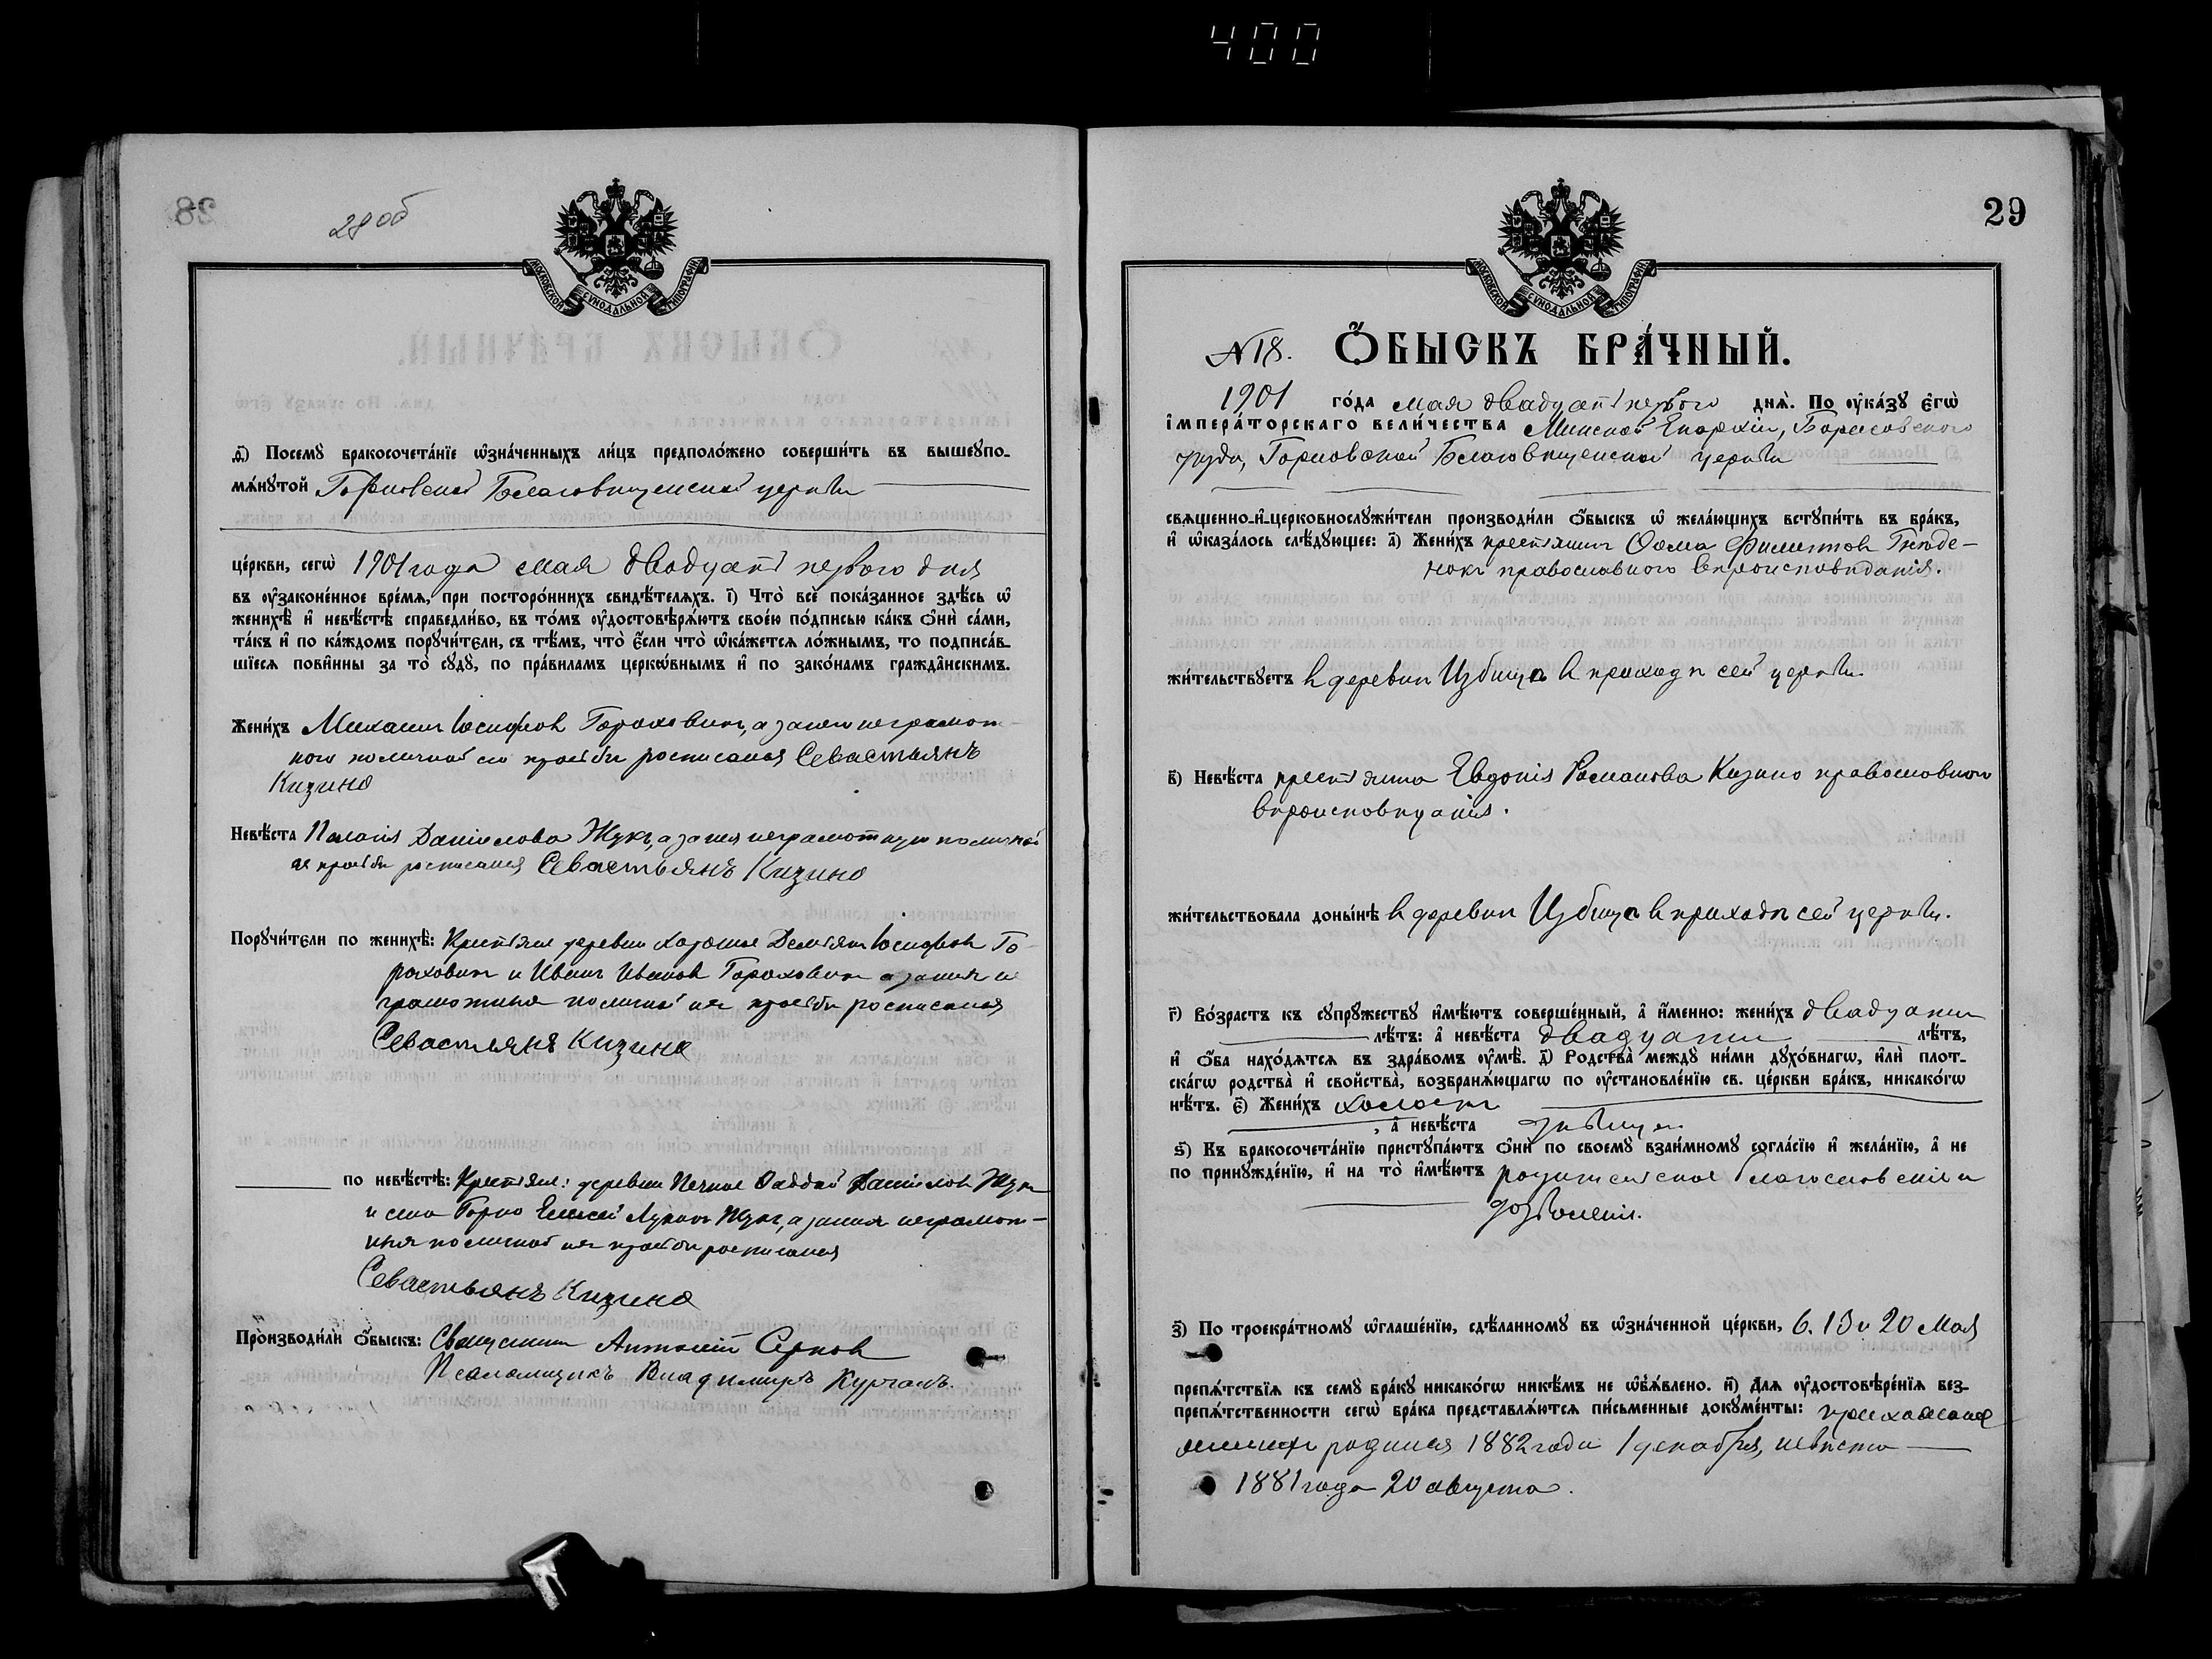 400
28об
МОСКОВСКОЙ СУНОДАЛЬНОЙ ТИПОГРАФІИ.
д҃) Посемꙋ̀ бракосочета́нїе ѡ҆зна́ченныхъ ли́цъ предполо́жено соверши́ть въ вышеупо-
мѧ́нꙋтой Горновской Благовѣщенской церкви
це́ркви, сегѡ̀ 1901 года мая двадцать перваго дня
въ ᲂу҆зако́ненное вре́мѧ, при посторо́ннихъ свидѣ́телѧхъ. і҃) Что̀ всѐ пока́занное здѣ́сь ѡ҆
женихѣ̀ и҆ невѣ́стѣ справедли́во, въ то́мъ ᲂу҆достовѣрѧ́ютъ свое́ю по́дписью ка́къ ѻ҆нѝ са́ми,
та́къ и҆ по ка́ждомъ порꙋчи́тели, съ тѣ́мъ, что̀ є҆́сли что̀ ѡ҆ка́жетсѧ ло́жнымъ, то подписа́в-
шїесѧ пови́нны за то̀ сꙋдꙋ̀, по пра́виламъ церко́внымъ и҆ по зако́намъ гражда́нскимъ.
Жени́хъ Михаилъ Іосифовъ Гороховикъ, а за него неграмот-
ного по личной его просьбѣ росписался Севастьянъ
Кизино
Невѣ́ста Палагія Даніилова Жукъ, а за нея неграмотную по личной
ея просьбѣ росписался Севастьянъ Кизино
Порꙋчи́тели по женихѣ̀: Крестьяне деревни Хорошее Демьянъ Іосифовъ Го-
роховикъ и Иванъ Ивановъ Гороховикъ а за нихъ не
грамотныхъ по личной ихъ просьбѣ росписался
Севастьянъ Кизино
по невѣ́стѣ: Крестьяне: деревни Печное Фаддей Даніиловъ Жукъ
и села Горно Елисей Лукинъ Жукъ, а за нихъ неграмот-
ныхъ по личной ихъ просьбѣ росписался
Севастьянъ Кизино
Производи́ли ѻ҆́быскъ: Священникъ Антоній Серновъ
Псаломщикъ Владимиръ Курганъ.
29
МОСКОВСКОЙ СУНОДАЛЬНОЙ ТИПОГРАФІИ.
№18. Ѻ҆́БЫСКЪ БРА́ЧНЫЙ.
1901 го́да мая двадцать перваго днѧ̀. По ᲂу҆ка́зꙋ є҆гѡ̀
і҆мпера́торскаго вели́чества Минской Епархіи, Борисовского
уѣзда, Горновской Благовѣщенской церкви
свѧщенно-и҆-церковнослꙋжи́тели производи́ли ѻ҆́быскъ ѡ҆ жела́ющихъ встꙋпи́ть въ бра́къ,
и҆ ѡ҆каза́лось слѣ́дꙋющее: а҃) Жени́хъ крестьянинъ Ѳома Филиповъ Гнѣде-
нокъ православного вѣроисповѣданія.
жи́тельствꙋетъ въ деревни Избища въ приходѣ сей церкви.
в҃) Невѣ́ста крестьянка Евдокія Романова Кизино православного
вѣроисповѣданія.
жи́тельствовала доны́нѣ въ деревни Избища въ приходѣ сей церкви.
г҃) Во́зрастъ къ сꙋпрꙋ́жествꙋ и҆мѣ́ютъ соверше́нный, а҆ и҆́менно: жени́хъ двадцати
лѣ́тъ: а҆ невѣ́ста двадцати лѣ́тъ,
и҆ ѻ҆́ба нахо́дѧтсѧ въ здра́вомъ ᲂу҆мѣ̀. д҃) Родства̀ междꙋ̀ ни́ми дꙋхо́внагѡ, и҆лѝ плот-
ска́гѡ родства̀ и҆ свойства̀, возбранѧ́ющагѡ по ᲂу҆становле́нїю св. це́ркви бра́къ, никако́гѡ
нѣ́тъ. є҃) Жени́хъ холостъ
, а҆ невѣ́ста дѣвица.
ѕ҃) Къ бракосочета́нїю пристꙋпа́ютъ ѻ҆нѝ по своемꙋ̀ взаи́мномꙋ согла́сїю и҆ жела́нїю, а҆ не
по принꙋжде́нїю, и҆ на то̀ и҆мѣ́ютъ родительское благословеніе и
дозволеніе.
з҃) По троекра́тномꙋ ѡ҆глаше́нїю, сдѣ́ланномꙋ въ ѡ҆зна́ченной це́ркви, 6. 13 и 20 Мая
препѧ́тствїѧ къ семꙋ̀ бра́кꙋ никако́гѡ никѣ́мъ не ѡ҆б̾ѧ́влено. и҃) Длѧ ᲂу҆достовѣре́нїѧ без-
препѧ́тственности сегѡ̀ бра́ка представлѧ́ютсѧ пи́сьменные докꙋме́нты: прихожане
женихъ родился 1882 года 1 декабря, невѣста
1881 года 20 августа.